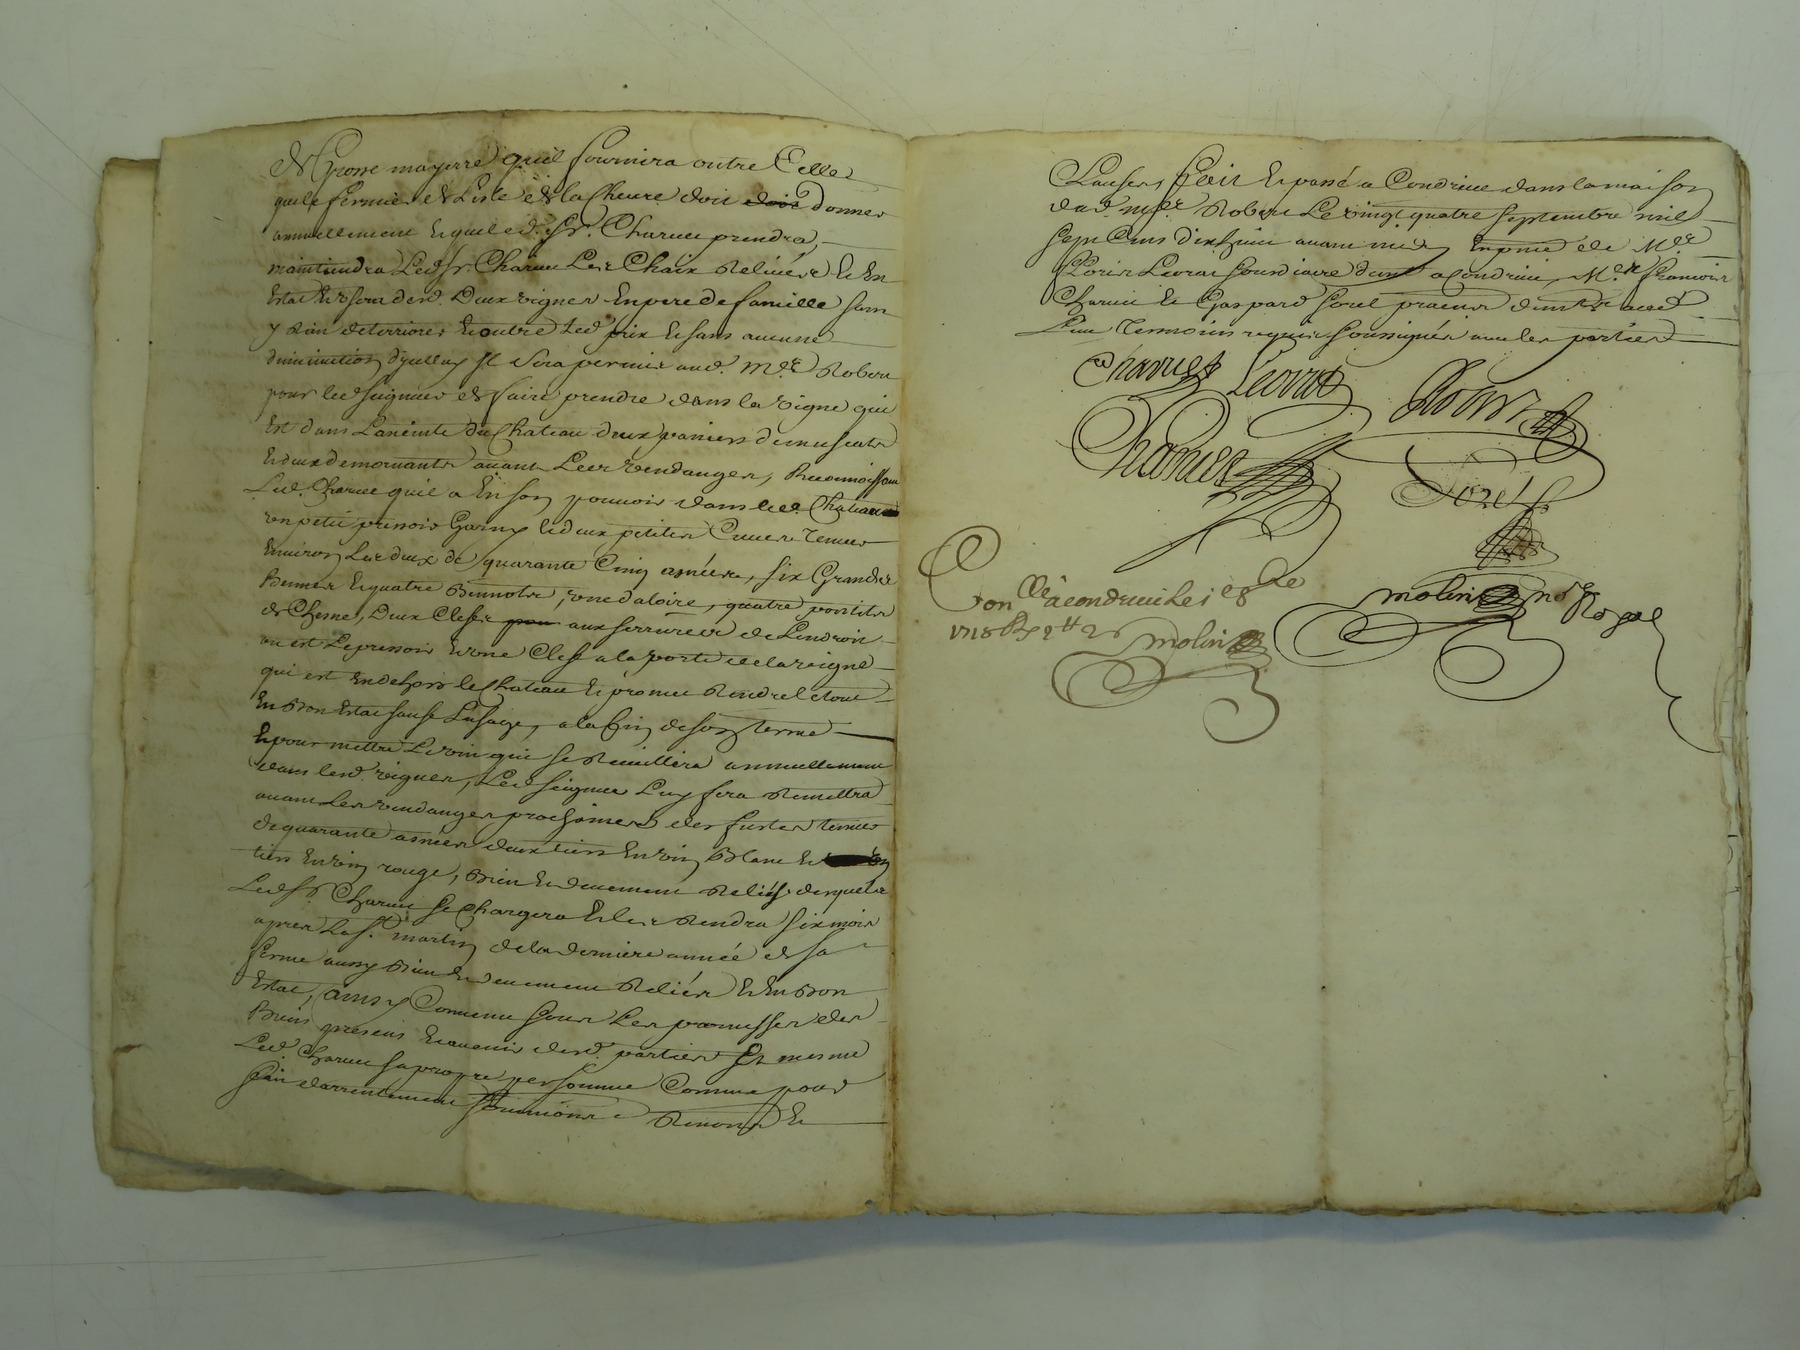 de Grosse mayerre quil fournira outre Celle
que le fermier de Lisle de la Cheure doit doit donner
annuellement lequel led. Sr. Charuet prendra,
maintiendra Led Sr. Charuet Les Chaix Relieuës & En
Estat lesd. Deux vignes En pere de famille sans
y Rien deteriorer Et outre Led prix Et sans aucune
diminution dyceluy Il sera permis aud. Mre. Robert
pour led seigneur de faire prendre dans la vigne qui
Est dans Lanceinte du Chateau deux paniers de muscats
Et deux de mornants auant Les Vendanges, Reconnoissant
Led. Charuet quil a En son pouuoir dans led. Chateau
un petit pressoir Garny Et deux petites Cuues Tenues
Enuiron Les deux de quarante Cinq asnées, six Grandes
Bennes Et quatre Bennots, une daloire, quatre
de Chesne, Deux Clefs aux serrures de Lendroit
ou est Le pressoir Et une Clef a la porte de la vigne
qui est En dehors le Chateau Et promet Rendre le tout
En Bon Estat sauf Lusage, a la fin de son terme
Et pour mettre Le vin qui se Recuillira annuellement
dans lesd. vignes, Led seigneur Luy fera Remettre
auant Les vendanges prochaines des fustes tenues
de quarante asnées deux tiers En vin Blanc Et un
tiers En vin rouge, Bien Et deuement Reliés desquels
Led Sr. Charuet se Chargera Et les Rendra six mois
apres La St. martin de la derniere année de sa
ferme aussy Bien Et deuement Reliés Et En Bon
Estat, ainsy Conuenu sous Les promesses des
Biens presens Et auenir desd. parties Et mesme
Led. Charuet sa propre personne Comme pour
fait darrentement soumissions Renons Et
Clauses fait Et passé a Condrieu dans la maison
dud. Mre. Robert Le vingt quatre septembre mil
sept Cens dix huit auant midy En pnce de Mre
Leorat a Condrieu, Mre. francois
Charuin Et Gaspard Sorel praticien
Temoins requis soussignés auec les parties
Charuet Leorat Robert
Charuin Sorel
Con Clé a Condrieu Le 1er 8bre
1718 molin
molin no.re Royal